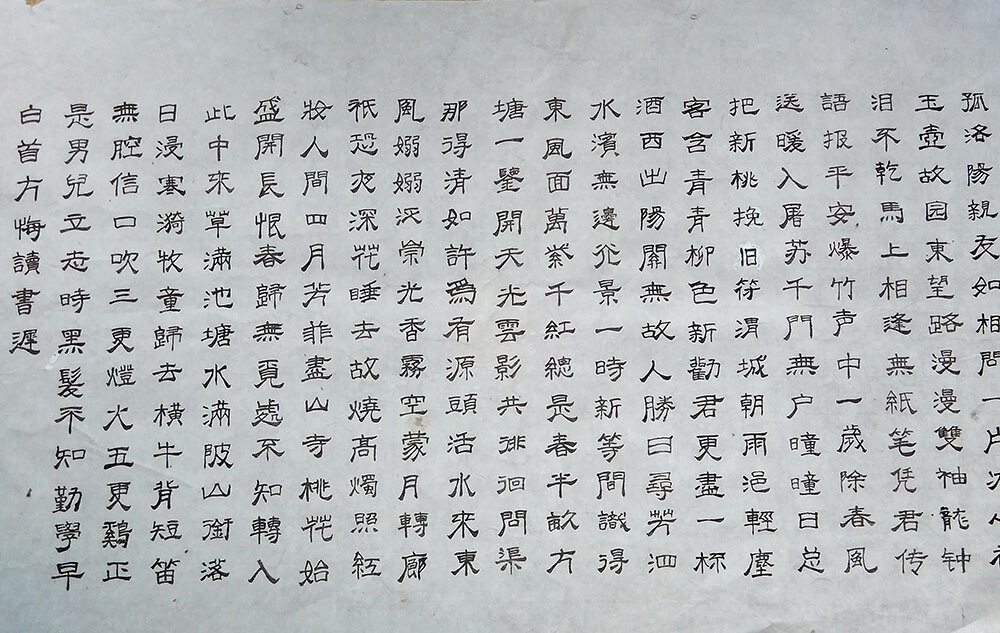 孤洛陽親友如相問一片冰心在
玉壺故园東望路漫漫雙袖龍钟
泪不乾馬上相逢無紙笔凭君传
語报平安爆竹声中一歲除春風
送暖入屠苏千門無户曈曈日总
把新桃挽旧符渭城朝雨浥輕塵
客含青青柳色新勸君更盡一杯
酒西出陽關無故人勝日尋芳泗
水濱無邊光景一時新等間識得
東風面萬紫千紅總是春半畝方
塘一鑒開天光雲影共徘徊問渠
那得清如許為有源頭活水來東
風嫋嫋泛崇光香霧空蒙月轉廊
祇恐夜深花睡去故燒高燭照紅
妝人間四月芳菲盡山寺桃花始
盛開長恨春歸無覓處不知轉入
此中來草滿池塘水滿陂山銜落
日浸寒漪牧童歸去橫牛背短笛
無腔信口吹三更燈火五更鷄正
是男兒立志時黑髮不知勤學早
白首方悔讀書遲